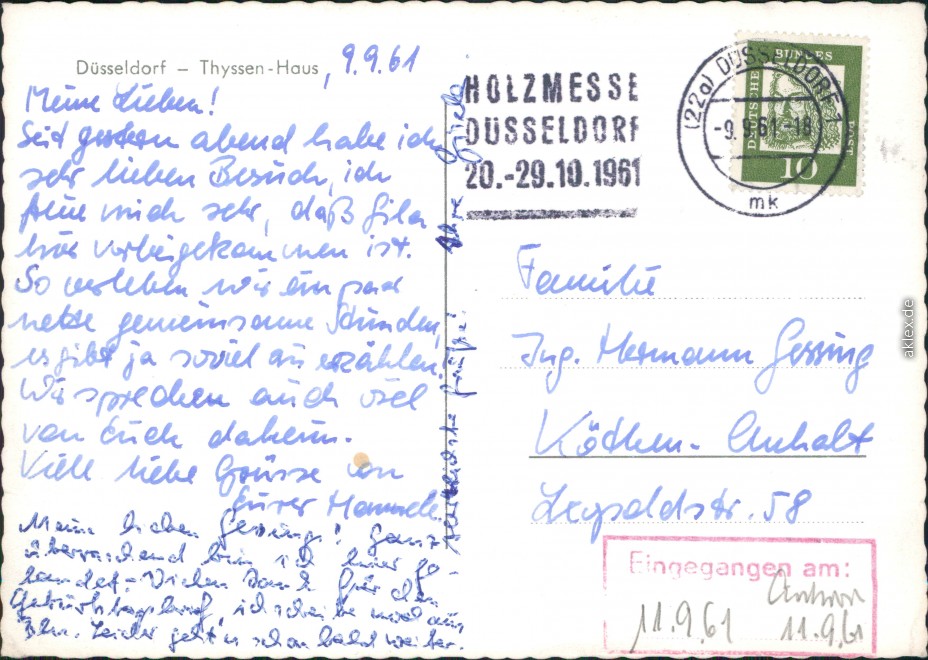 Düsseldorf – Thyssen-Haus , 9.9.61
Meine Lieben!
Seit gestern abend habe ich
sehr lieben Besuch, ich
freue mich sehr, daß Gila
hier vorbeigekommen ist.
So verleben wir ein paar
nette gemeinsame Stunden,
es gibt ja soviel zu erzählen.
Wir sprechen auch viel
von Euch daheim.
Viele liebe Grüsse von
Eurer
Meine lieben Gessings! Ganz
überraschend bin ich hier ge-
landet. Vielen Dank für den
Geburtstagsbrief, ich schreibe noch aus
Bln. Leider geht's schon bald weiter.
Herzliche Grüße! Ihre Gisela
HOLZMESSE
DÜSSELDORF
20.-29.10.1961
(22a) DÜSSELDORF 1
-9.9.61-18
mk
DEUTSCHE BUNDESPOST
10
Familie
Ing. Hermann Gessing
Köthen-Anhalt
Leopoldstr. 58
Eingegangen am:
11.9.61
Antwor
11.9.61
aklex.de